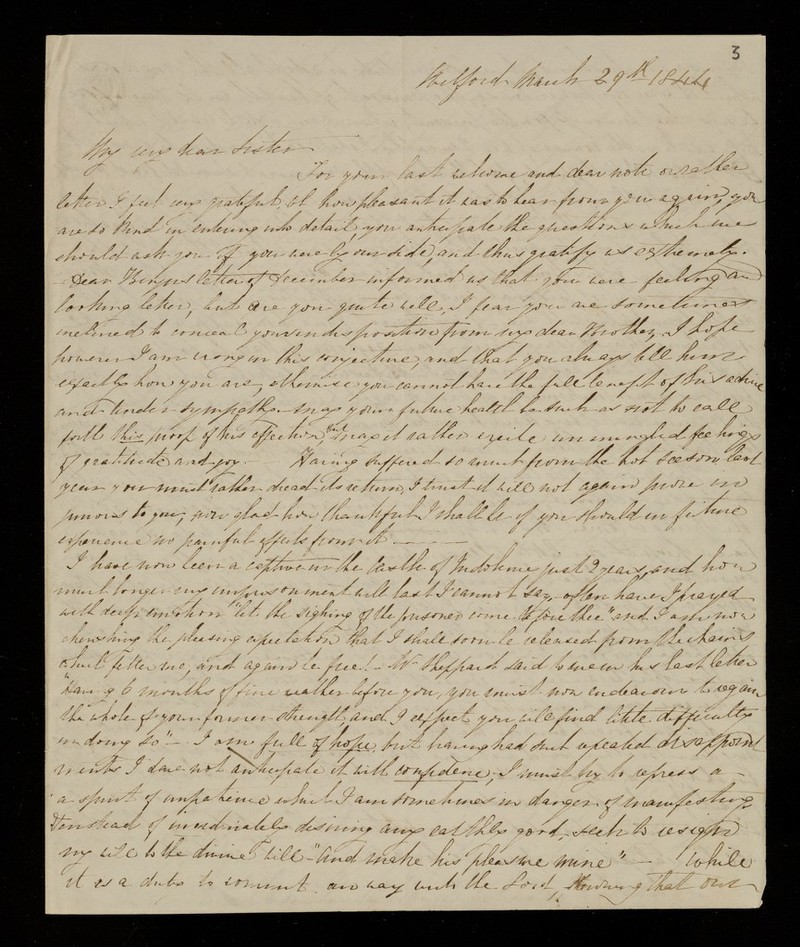 3
Welford March 29th 1844
My very dear Sister
For your last welcome and dear note or rather
letter I feel very grateful, oh how pleasant it was to hear from you again, you
are so kind in entering into detail, you anticipate the questions which we
should ask you if you were by our side, and thus gratify us extremely.
- Dear letter of December informed us that you were feeling and
looking better, but are you quite well, I fear you are sometimes
inclined to conceal your indisposition from my dear Brother, I hope
however I am wrong in this conjecture, and that you always tell him
exactly how you are, otherwise you cannot have the full benefit of his advice
and tender sympathy may your future health be such as not to call
forth this proof of his affection but may it rather excite unmingled feelings
of gratitude and joy. Having suffered so much from the hot season last
year you must rather dread its return, I trust it will not again prove in
jurious to you, how glad how thankful I shall be if you should in future
experience no painful effects from it
I have now been a captive in the Castle of just 2 years, and how
much longer my imprisonment will last I cannot say, often have I prayed
with deep emotion "let the sighing of the prisoner come before thee" and I am now
cherishing the pleasing expectation that I shall soon be released from the chains
which fetter me, and again be free. - Mr Sheppard said to me in his last letter
"Having 6 months of fine weather before you, you must now endeavour to regain
the whole of your former strength, and I expect you will find little difficulty
in doing so" - I am full of hope, but having had such repeated disappoint
ments I dare not anticipate it with confidence, I must try to repress a
a spirit of impatience which I am sometimes in danger of manifesting,
Instead of inordinately desiring any earthly good, seek to resign
my will to the divine will "And make his pleasure mine" - While
it is a duty to commit our way unto the Lord, knowing that our